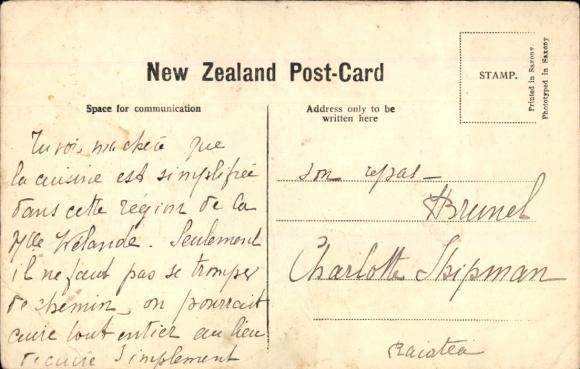 New Zealand Post-Card
Space for communication
Address only to be
written here
STAMP.
Printed in Saxony.
Phototyped in Saxony
Tu vois, ma chère que
la cuisine est simplifiée
dans cette région de la
Nlle Zélande. Seulement
il ne faut pas se tromper
de chemin, on pourrait
cuire tout entier au lieu
de cuire simplement
son repas
HBrunel
Charlotte Shipman
Raiatea